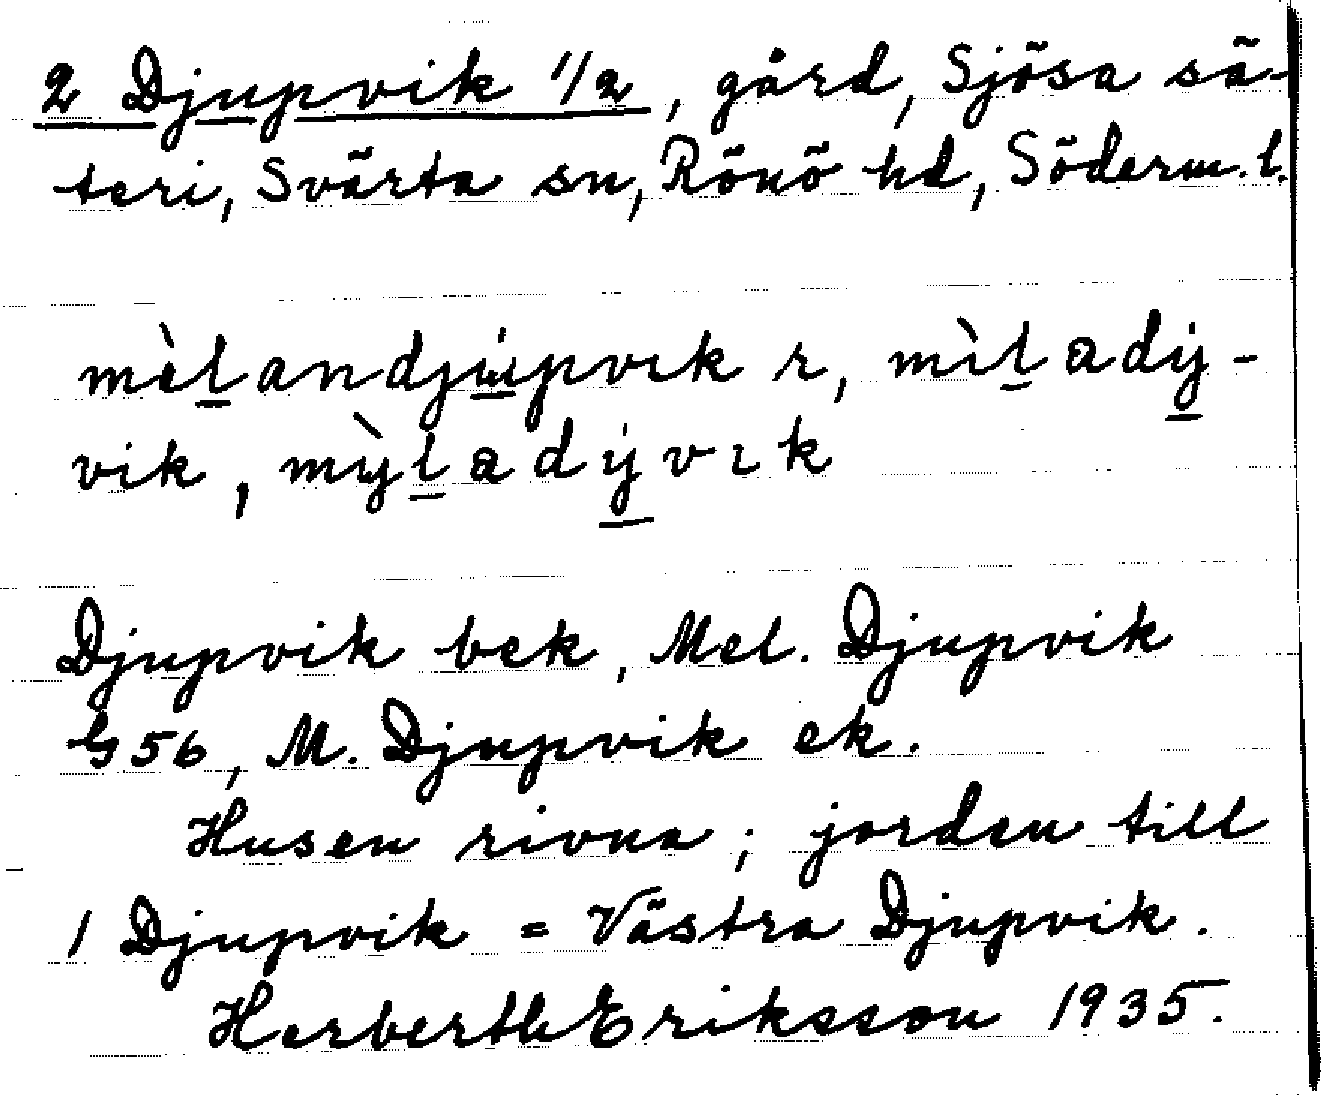 2 Djupvik 1/2, gård, Sjösa sä-
teri, Svärta sn, Rönö hd, Söderm. l.
mèḻandju̱pvɩk r, mìḻady̱-
vik, mỳḻady̱vɩk
Djupvik bek, Mel. Djupvik
G 56, M. Djupvik ek.
Husen rivna; jorden till
1 Djupvik = Västra Djupvik.
Herberth Eriksson 1935.